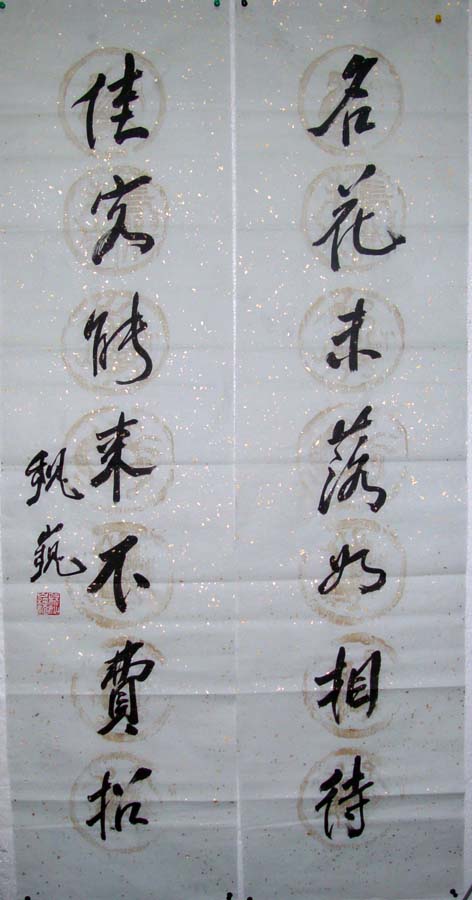 名花未落如相待
佳客能来不费招
魏巍